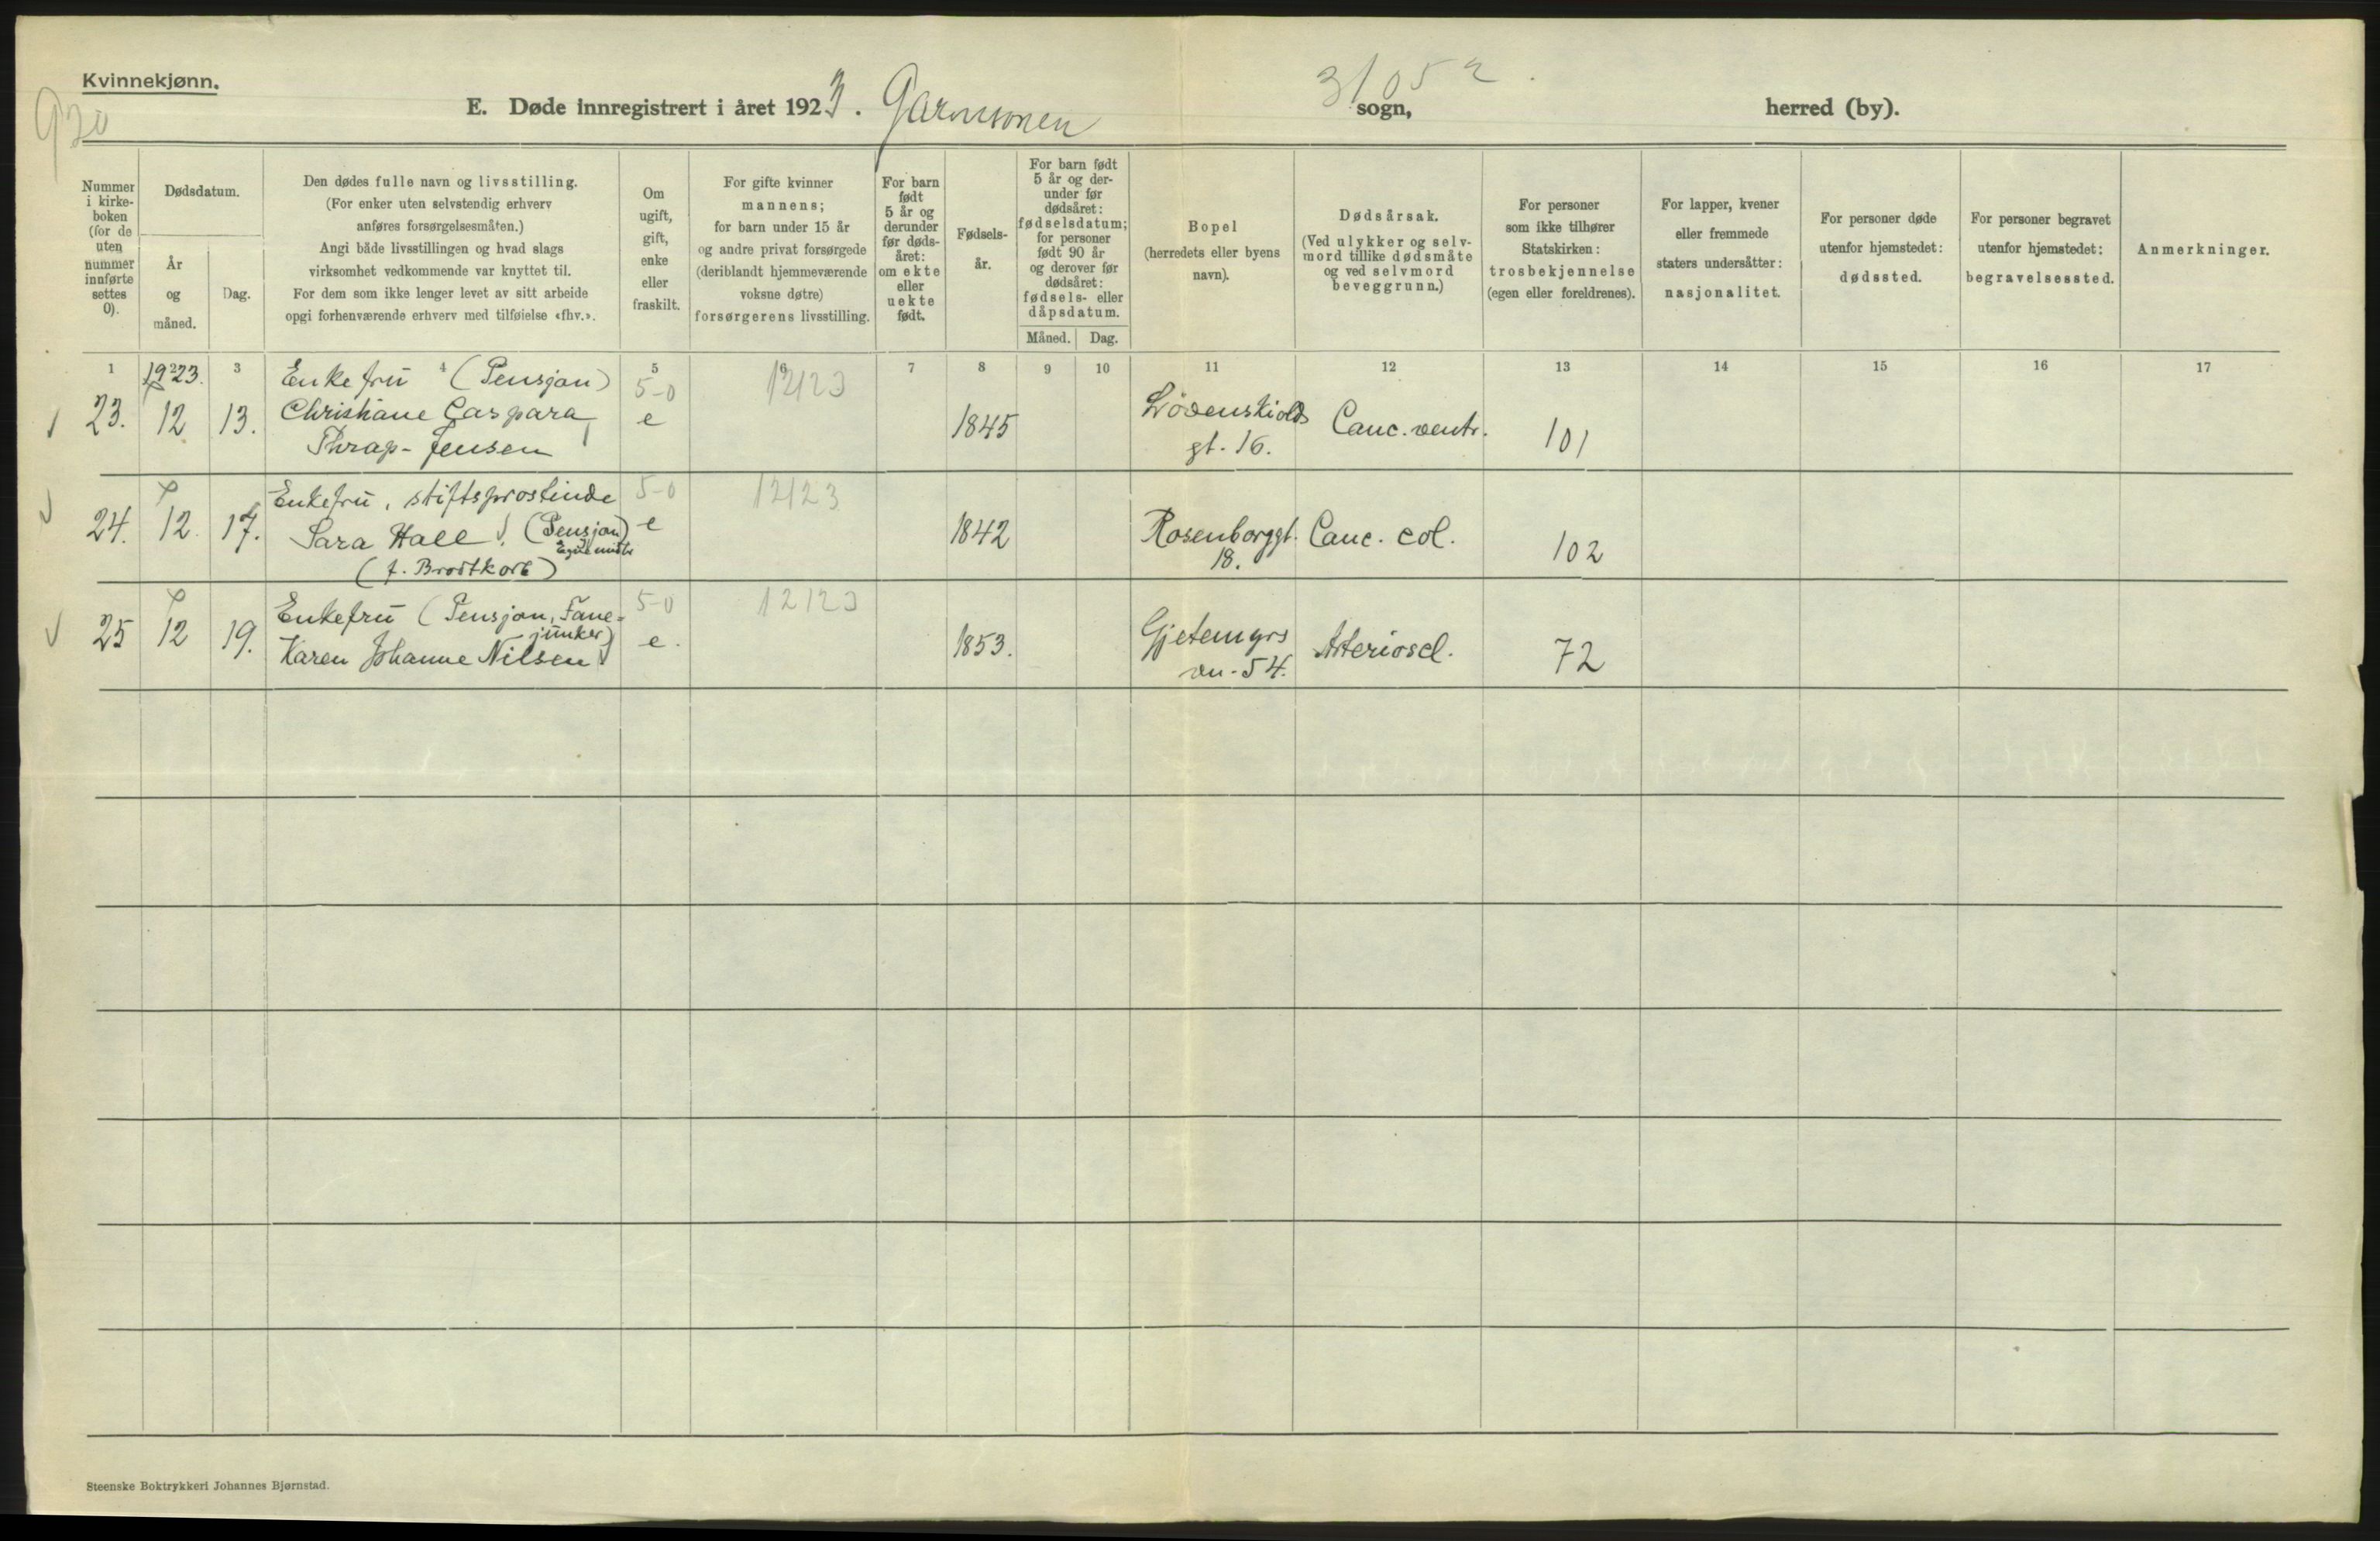 Kvinnekjønn.
920
E. Døde innregistrert i året 1923. Garnisonen sogn, herred (by).
31052
Nummer i kirkeboken (for de uten nummer innførte settes 0).
Dødsdatum.
År og måned.
Dag.
Den dødes fulle navn og livsstilling.
(For enker uten selvstendig erhverv
anføres forsørgelsesmåten.)
Angi både livsstillingen og hvad slags
virksomhet vedkommende var knyttet til.
For dem som ikke lenger levet av sitt arbeide
opgi forhenværende erhverv med tilføielse «fhv.».
Om
ugift,
gift,
enke
eller
fraskilt.
For gifte kvinner
mannens;
for barn under 15 år
og andre privat forsørgede
(deriblandt hjemmeværende
voksne døtre)
forsørgerens livsstilling.
For barn
født
5 år og
derunder
før døds-
året:
om ekte
eller
uekte
født.
Fødsels-
år.
For barn født
5 år og der-
under før
dødsåret:
fødselsdatum;
for personer
født 90 år
og derover før
dødsåret:
fødsels- eller
dåpsdatum.
Måned. Dag.
Bopel
(herredets eller byens
navn).
Dødsårsak.
(Ved ulykker og selv-
mord tillike dødsmåte
og ved selvmord
beveggrunn.)
For personer
som ikke tilhører
Statskirken:
trosbekjennelse
(egen eller foreldrenes).
For lapper, kvener
eller fremmede
staters undersåtter:
nasjonalitet.
For personer døde
utenfor hjemstedet:
dødssted.
For personer begravet
utenfor hjemstedet:
begravelsessted.
Anmerkninger.
1 2 3 4 5 6 7 8 9 10 11 12 13 14 15 16 17
1923.
23. 12 13. Enkefru (Pensjon)
Christiane Caspara
Thrap-Jensen
5-0
e
12123
1845
Lövenskiolds
gt. 16.
Canc. ventr.
101
24. 12. 17. Enkefru, stiftsprostinde
Sara Hall (Pensjon)
Egne midler
(f. Brodtkorb)
5-0
e
12123
1842
Rosenborggt.
18.
Canc. col.
102
25 12 19. Enkefru (Pensjon, Fane-
junker)
Karen Johanne Nilsen
5-0
e.
12123
1853.
Gjetemyrs
vn. 54.
Arterioscl.
72
Steenske Boktrykkeri Johannes Bjørnstad.